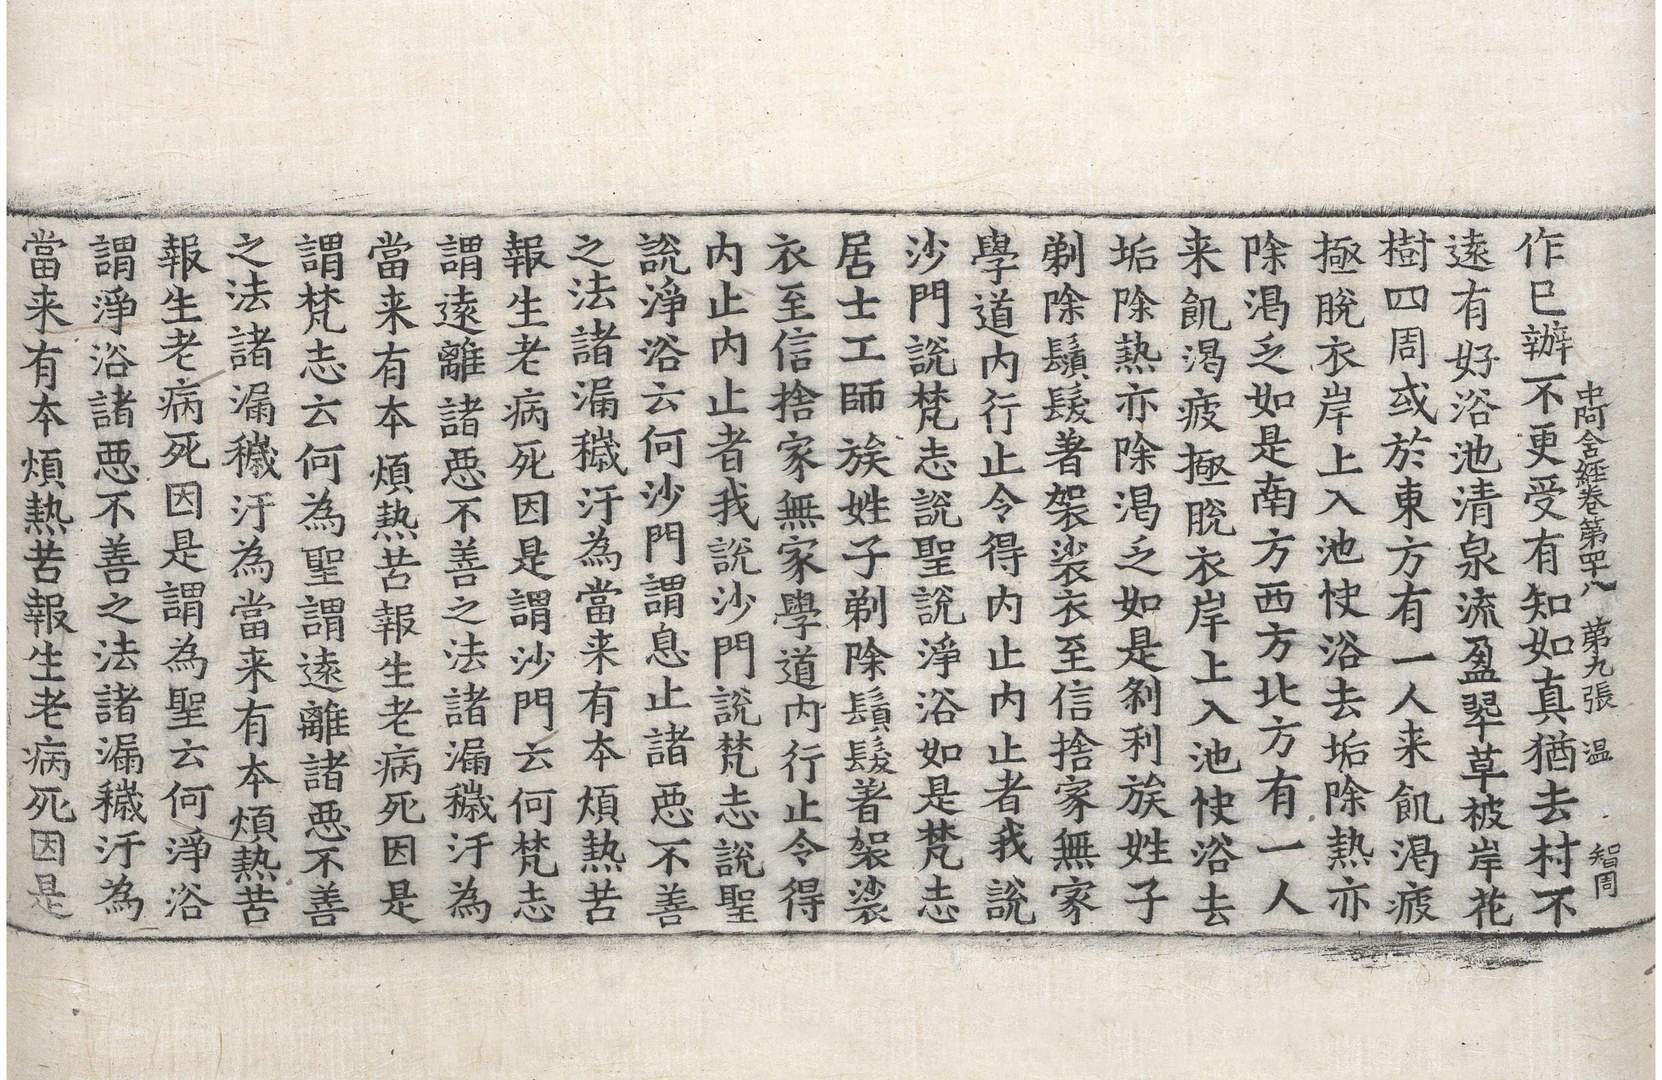 中阿含經卷第四十八 第九張 温 智周
作已辦不更受有知如真猶去村不
遠有好浴池清泉流盈翠草被岸花
樹四周或於東方有一人来飢渴疲
極脫衣岸上入池快浴去垢除熱亦
除渴乏如是南方西方北方有一人
来飢渴疲極脫衣岸上入池快浴去
垢除熱亦除渴乏如是剎利族姓子
剃除鬚髮著袈裟衣至信捨家無家
學道內行止令得內止內止者我說
沙門說梵志說聖說淨浴如是梵志
居士工師族姓子剃除鬚髮著袈裟
衣至信捨家無家學道內行止令得
內止內止者我說沙門說梵志說聖
說淨浴云何沙門謂息止諸惡不善
之法諸漏穢汙為當来有本煩熱苦
報生老病死因是謂沙門云何梵志
謂遠離諸惡不善之法諸漏穢汙為
當来有本煩熱苦報生老病死因是
謂梵志云何為聖謂遠離諸惡不善
之法諸漏穢汙為當来有本煩熱苦
報生老病死因是謂為聖云何淨浴
謂淨浴諸惡不善之法諸漏穢汙為
當来有本煩熱苦報生老病死因是